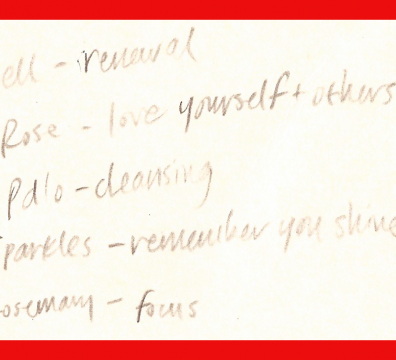 ell - renewal
Rose - love yourself + others
Palo - cleansing
parkles - remember you shine
osemary - focus